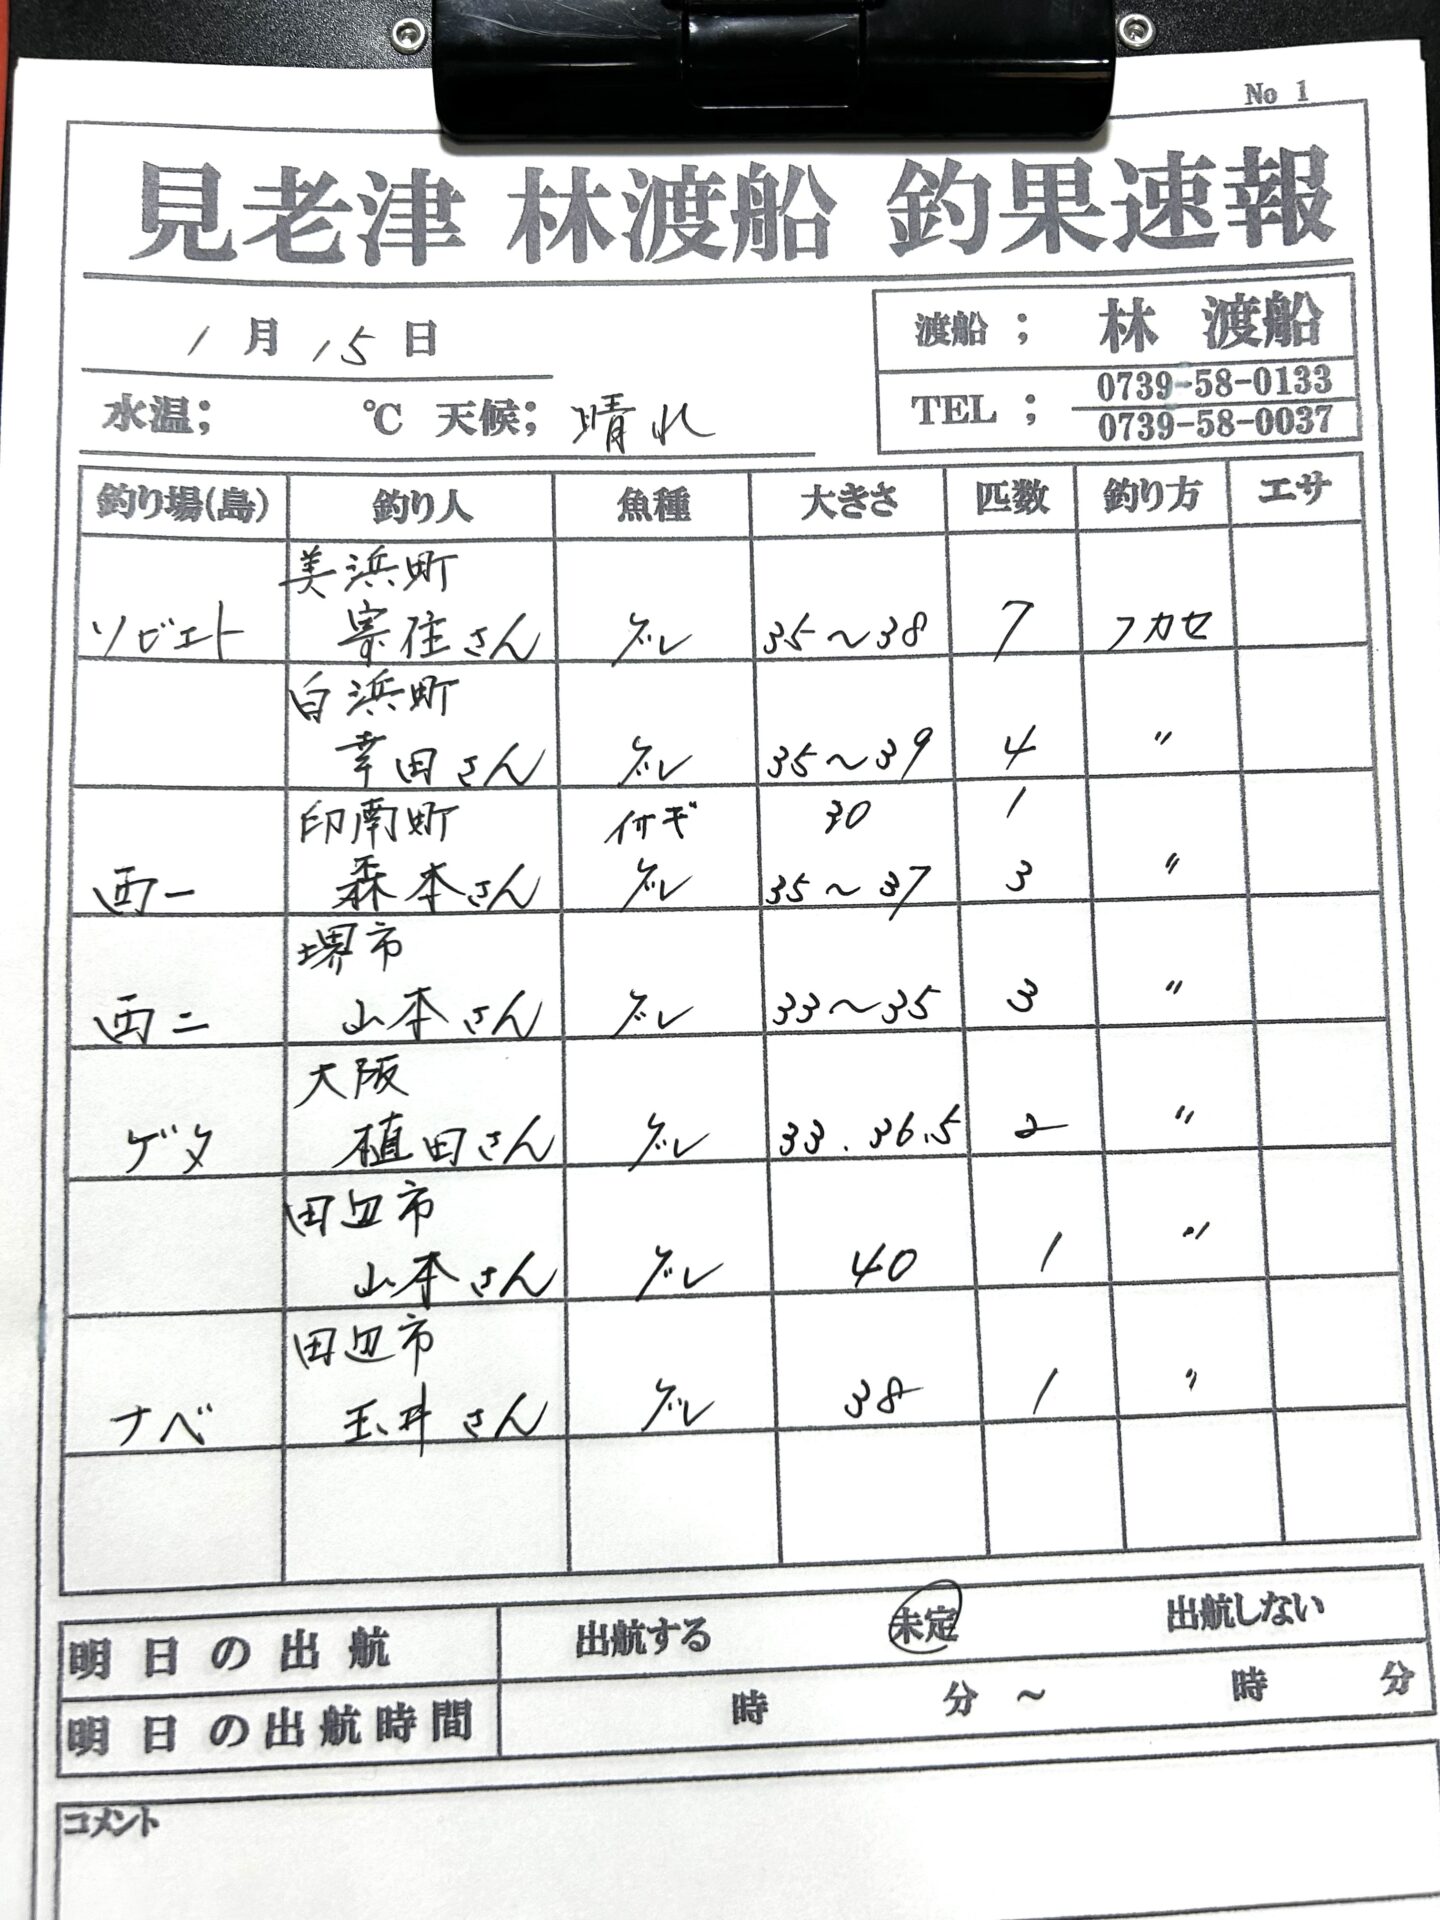 No 1
見老津 林渡船 釣果速報
1月15日
渡船； 林 渡船
TEL； 0739-58-0133
0739-58-0037
水温； ℃ 天候；晴れ
釣り場(島) 釣り人 魚種 大きさ 匹数 釣り方 エサ
美浜町
ソビエト 寄住さん グレ 35～38 7 フカセ
白浜町
幸田さん グレ 35～39 4 〃
印南町 イサギ 30 1
西一 森本さん グレ 35～37 3 〃
堺市
西二 山本さん グレ 33～35 3 〃
大阪
ゲタ 植田さん グレ 33.36.5 2 〃
田辺市
山本さん グレ 40 1 〃
田辺市
ナベ 玉井さん グレ 38 1 〃
明日の出航 出航する 未定 出航しない
明日の出航時間 時 分 ～ 時 分
コメント